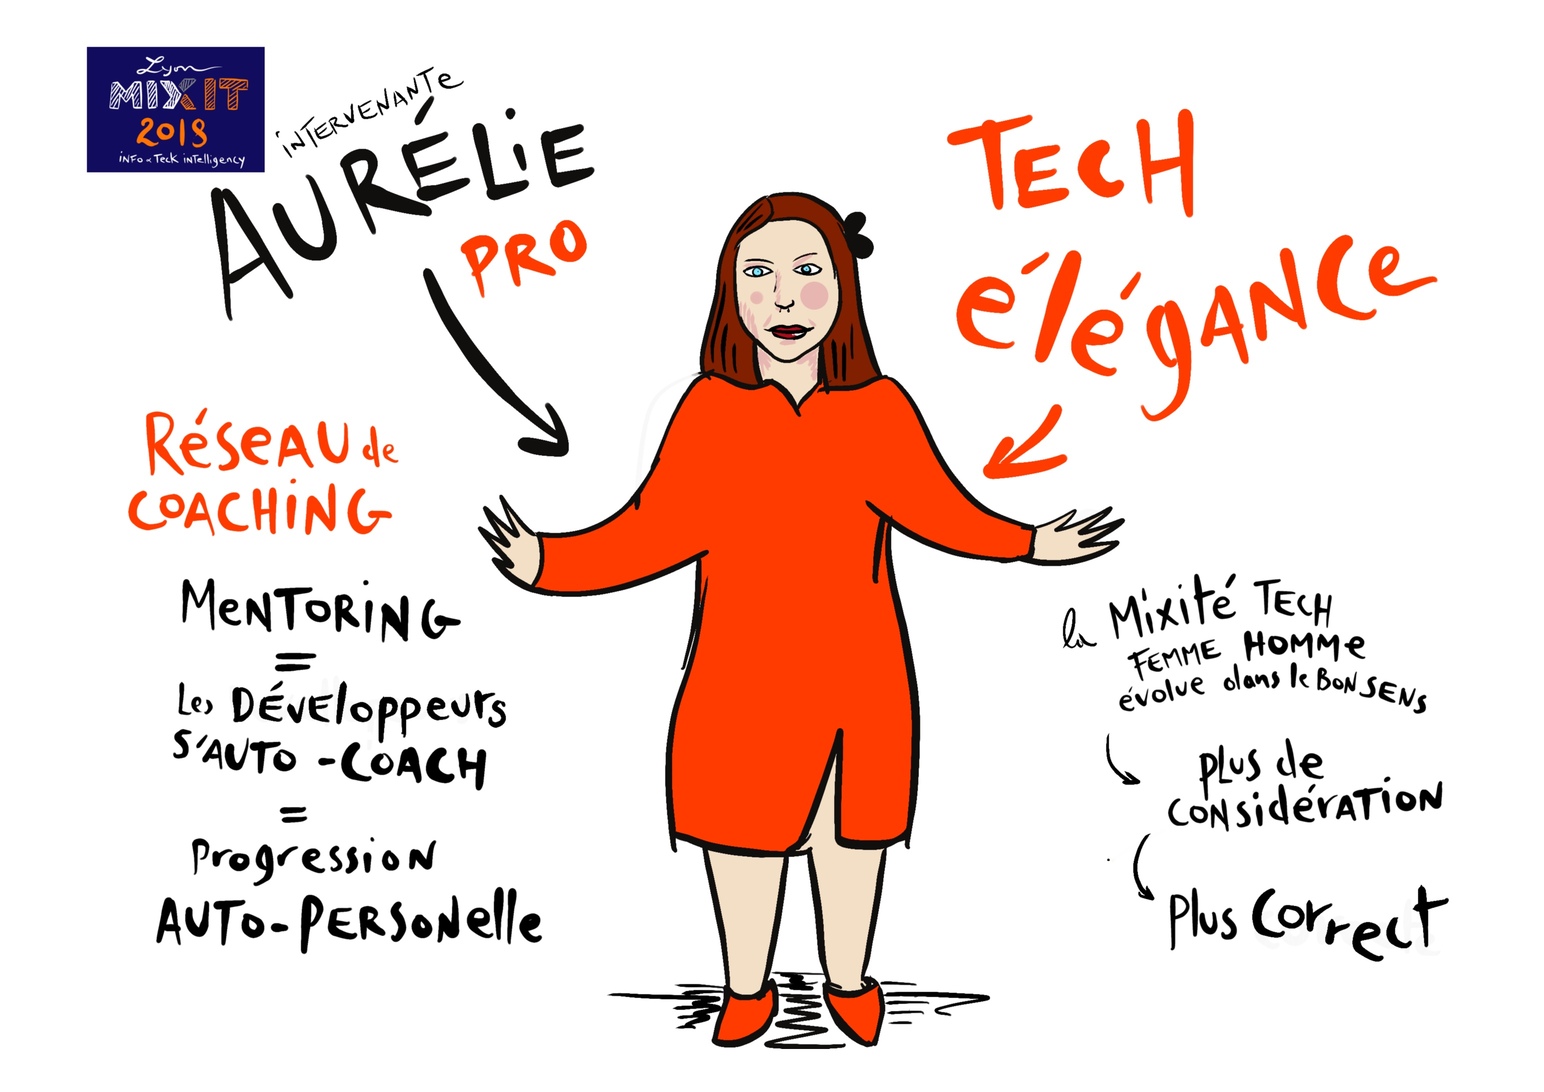 Lyon
MIXIT
2018
iNFO & Teck iNTelligency
iNTERVENANTe
AURÉLiE
PRO
TECH
éléGANCe
RéSeAU de
COACHiNG
MeNTORiNG
=
Les DÉVEloppeurs
S'AUTO-COACH
=
Progression
AUTO-PERSONelle
la Mixité TECH
FEMME HOMMe
évolue dans le BON SENS
plus de
CONsidérATiON
Plus Correct